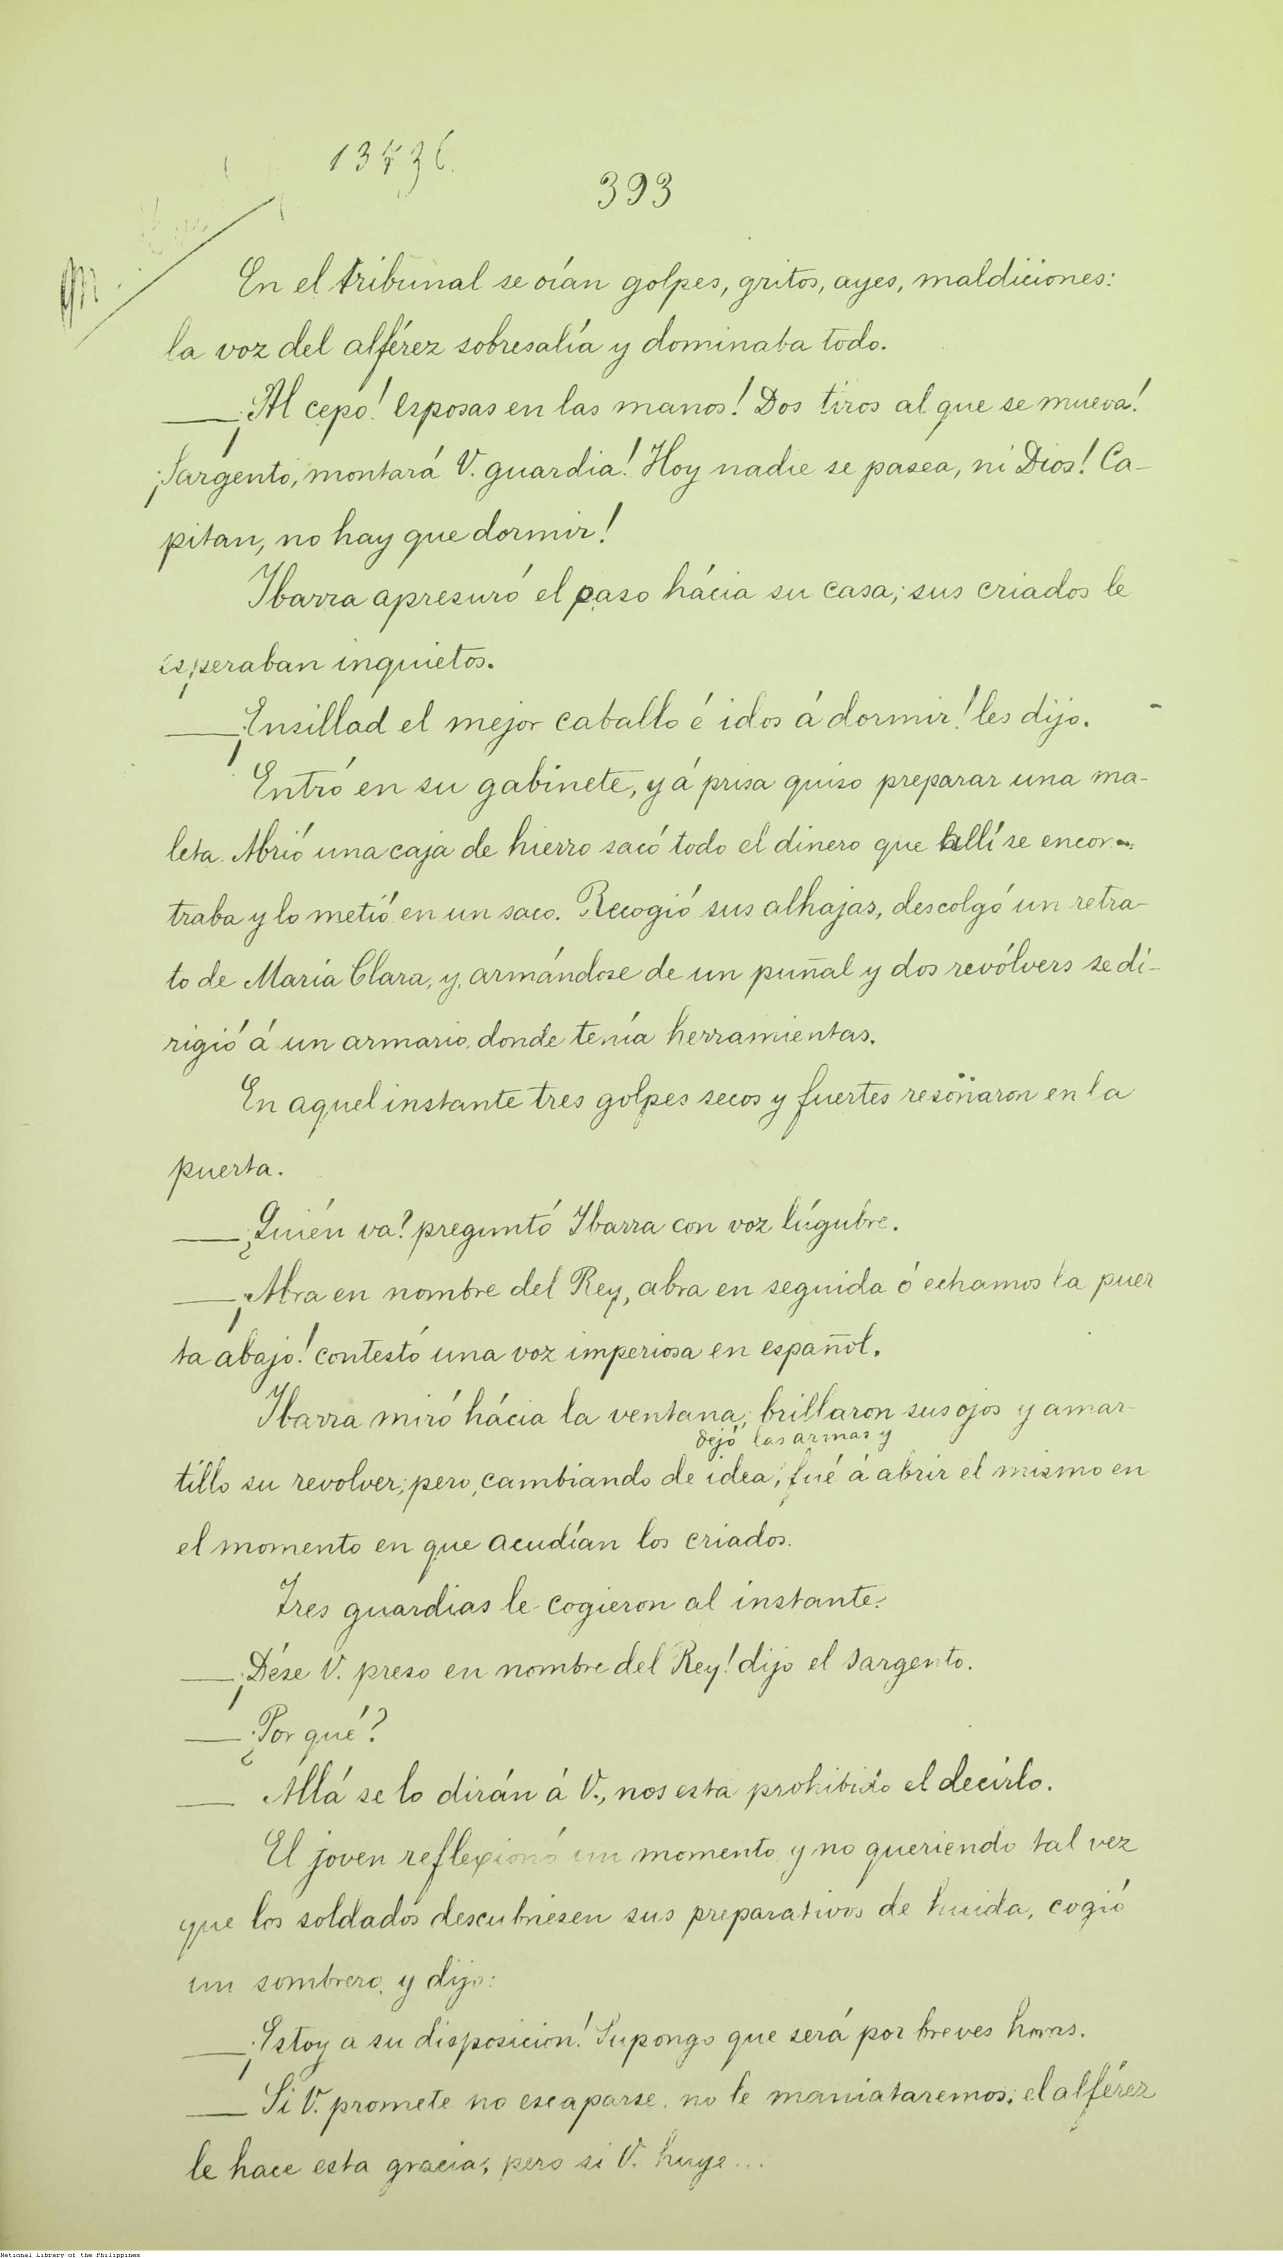 393
En el tribunal se oían golpes, gritos, ayes, maldiciones:
la voz del alférez sobresalía y dominaba todo.
—¡Al cepo! Esposas en las manos! Dos tiros al que se mueva!
¡Sargento, montará V. guardia! Hoy nadie se pasea, ni Dios! Ca-
pitan, no hay que dormir!
Ibarra apresuró el paso hácia su casa; sus criados le
esperaban inquietos.
—¡Ensillad el mejor caballo é idos á dormir! les dijo.
Entró en su gabinete, y á prisa quiso preparar una ma-
leta. Abrió una caja de hierro sacó todo el dinero que allí se encon-
traba y lo metió en un saco. Recogió sus alhajas, descolgó un retra-
to de María Clara, y, armándose de un puñal y dos revólvers se di-
rigió á un armario, donde tenía herramientas.
En aquel instante tres golpes secos y fuertes resonaron en la
puerta.
—¿Quién va? preguntó Ibarra con voz lúgubre.
—¡Abra en nombre del Rey, abra en seguida ó echamos la puer
ta abajo! contestó una voz imperiosa en español.
Ibarra miró hácia la ventana; brillaron sus ojos y amar-
dejó las armas y
tillo su revolver; pero, cambiando de idea, fué á abrir el mismo en
el momento en que acudían los criados.
Tres guardias le cogieron al instante.
—¡Dése V. preso en nombre del Rey! dijo el sargento.
—¿Por qué?
— Allá se lo dirán á V., nos esta prohibido el decirlo.
El joven reflexionó un momento y no queriendo tal vez
que los soldados descubriesen sus preparativos de huida, cogió
un sombrero, y dijo:
—¡Estoy a su disposicion! Supongo que será por breves horas.
— Si V. promete no escaparse, no le maniataremos; el alférez
le hace esta gracia; pero si V. huye...
National Library of the Philippines